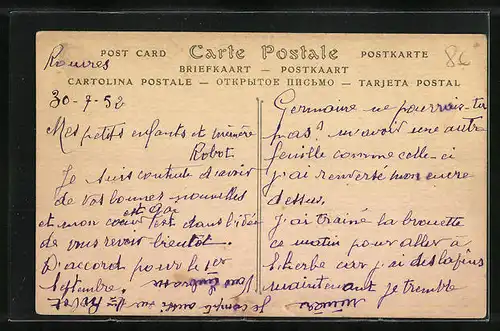 Rouvres
POST CARD Carte Postale POSTKARTE
BRIEFKAART — POSTKAART
CARTOLINA POSTALE — ОТКРЫТОЕ ПИСЬМО — TARJETA POSTAL
30-7-52
Mes petits enfants et mémère
Robot
Je suis contente d'avoir
de vos bonnes nouvelles
et mon cœur est gai dans l'idée
de vous revoir bientôt.
D'accord pour le 1er
Septembre.
Je compte aussi sur
Germaine ne pourrais-tu
pas? m'avoir une autre
feuille comme celle-ci
j'ai renversé mon encre
dessus.
J'ai trainé la brouette
ce matin pour aller à
l'herbe car j'ai des lapins
maintenant je tremble
mémère